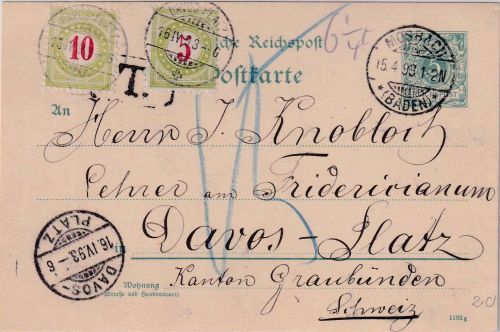 10
5
16.IV.93
T.
che Reichspost
Postkarte
MOSBACH
15.4.93.1-2N
*(BADEN)*
5
An
Herrn J. Knobloch
Lehrer am Fridericianum
in Davos-Platz
Wohnung
(Straße und Hausnummer)
Kanton Graubünden
Schweiz
DAVOS-PLATZ
16.IV.93-6
15
1192g